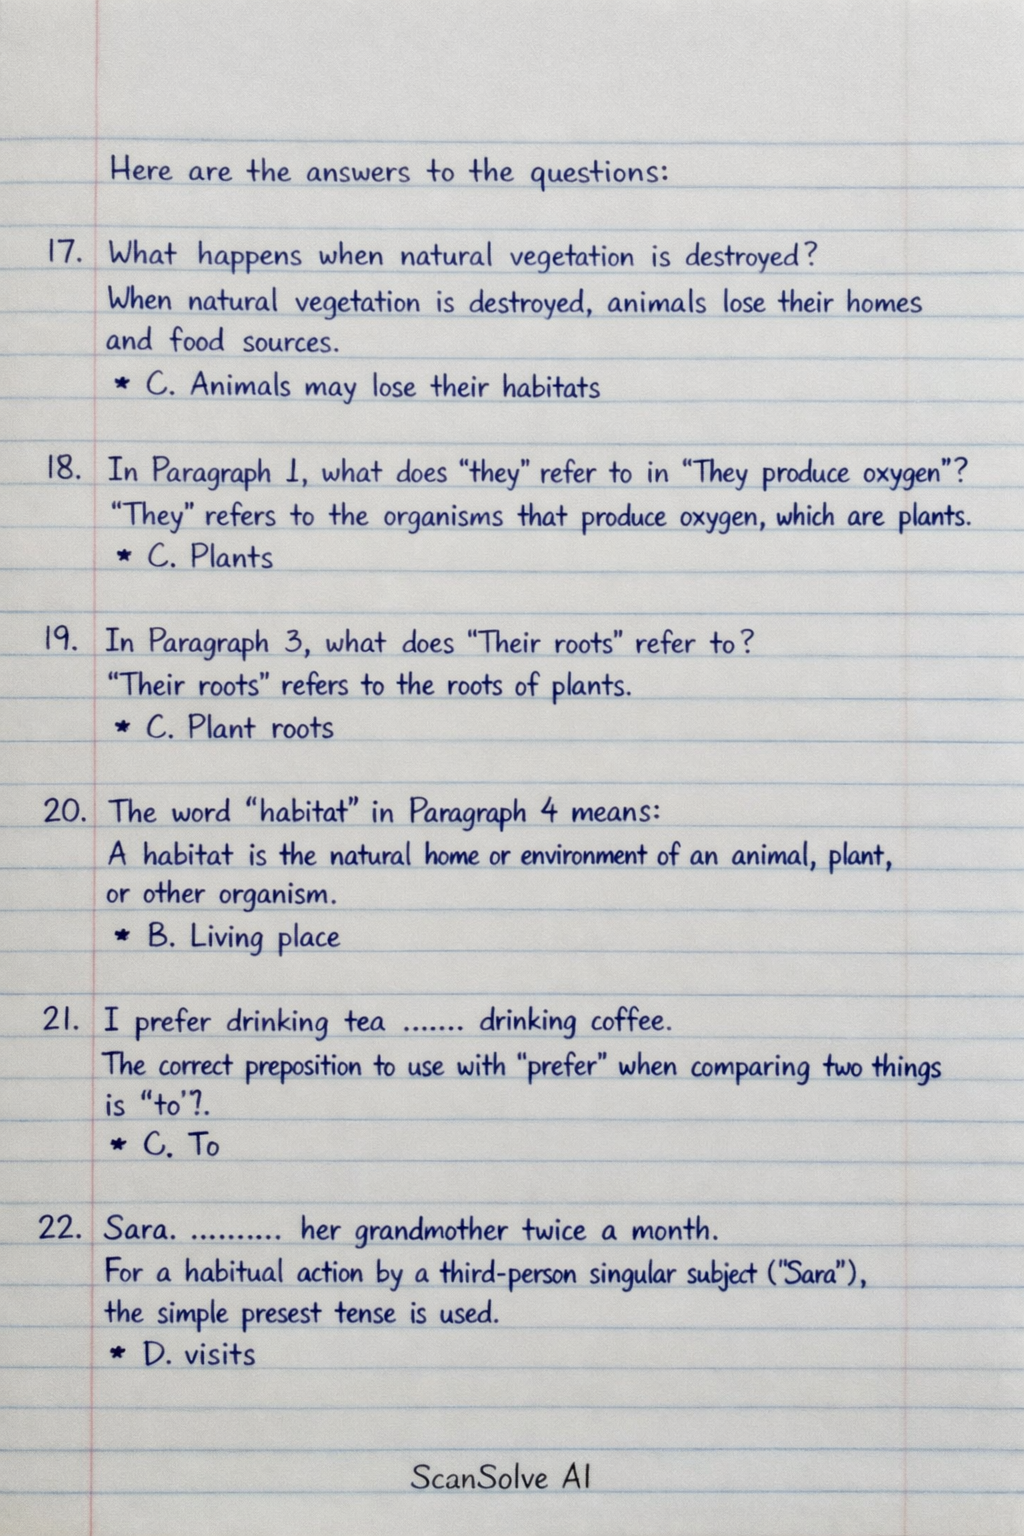 Here are the answers to the questions:
17. What happens when natural vegetation is destroyed?
When natural vegetation is destroyed, animals lose their homes
and food sources.
* C. Animals may lose their habitats
18. In Paragraph 1, what does "they" refer to in "They produce oxygen"?
"They" refers to the organisms that produce oxygen, which are plants.
* C. Plants
19. In Paragraph 3, what does "Their roots" refer to?
"Their roots" refers to the roots of plants.
* C. Plant roots
20. The word "habitat" in Paragraph 4 means:
A habitat is the natural home or environment of an animal, plant,
or other organism.
* B. Living place
21. I prefer drinking tea ....... drinking coffee.
The correct preposition to use with "prefer" when comparing two things
is "to'?.
* C. To
22. Sara. .......... her grandmother twice a month.
For a habitual action by a third-person singular subject ("Sara"),
the simple presest tense is used.
* D. visits
ScanSolve AI